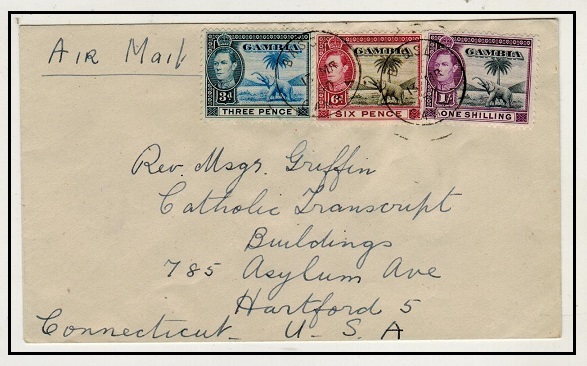 AIR Mail
GAMBIA
3d
THREE PENCE
GAMBIA
6d
SIX PENCE
GAMBIA
1/-
ONE SHILLING
Rev. Msgr. Griffin
Catholic Transcript
Buildings
785 Asylum Ave
Hartford 5
Connecticut - U. S. A